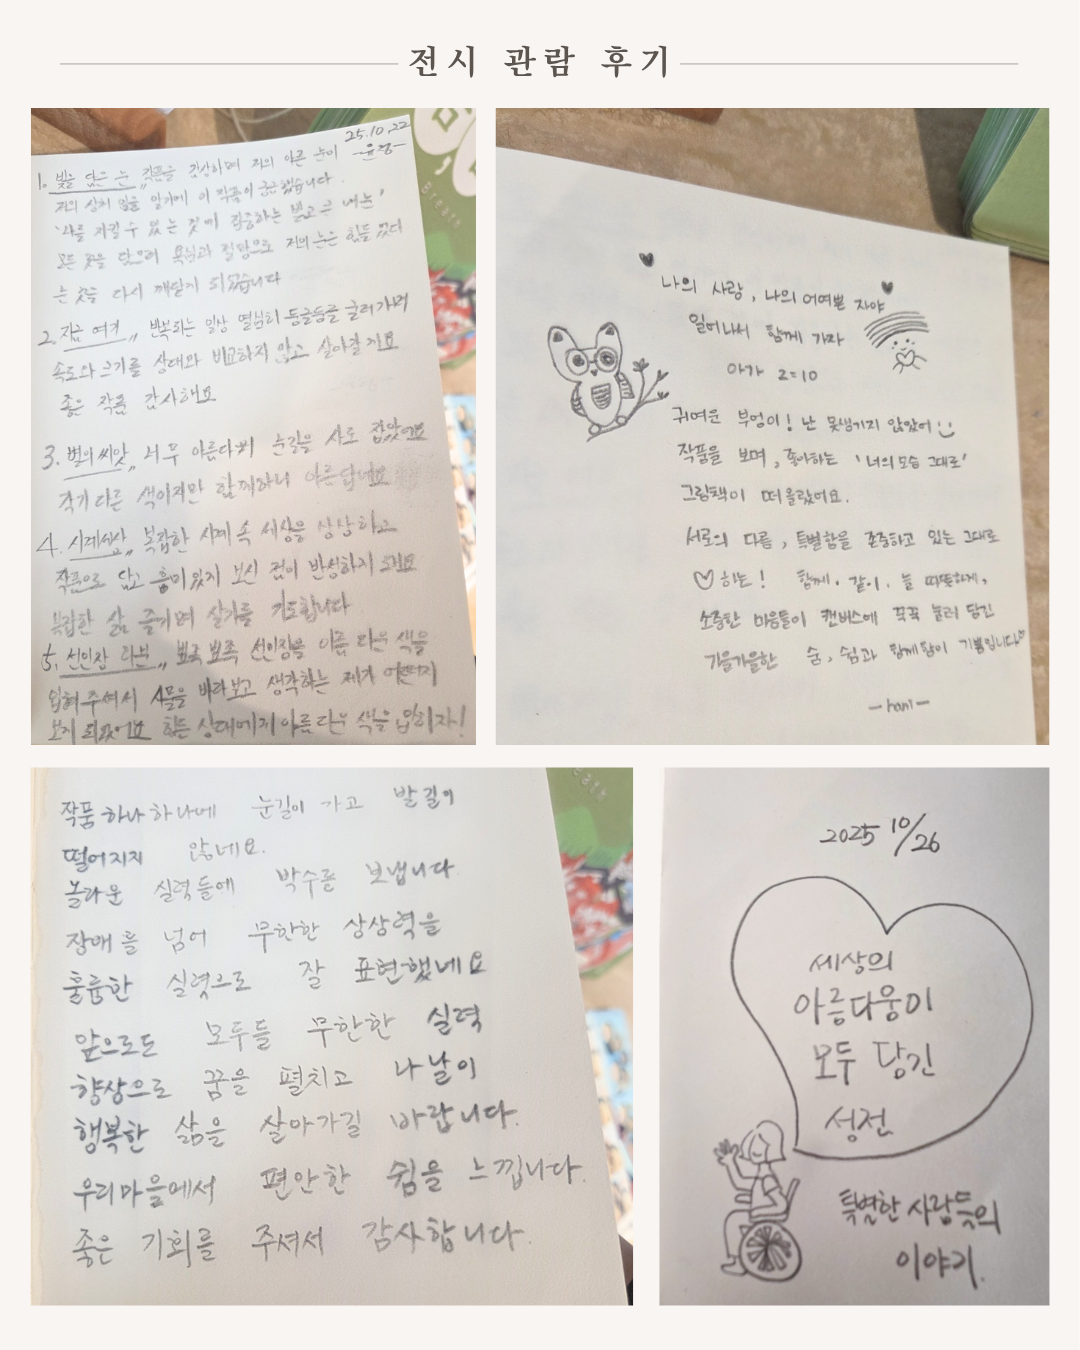 전시 관람 후기
25.10.22
-윤정-
1. 빛을 담은 눈,, 작품을 감상하며 저의 아픈 눈이
저의 상처 임을 알기에 이 작품이 궁금했습니다.
'나를 지킬 수 있는 것에 집중하는 밝고 큰 내눈'
모든 꽃을 담으려 욕심과 절망으로 저의 눈은 힘들 었다
는 것을 다시 깨닫게 되었습니다
2. 지금 여기,, 반복되는 일상 열심히 둥글둥글 굴러가며
속도와 크기를 상대와 비교하지 않고 살아갈게요
좋은 작품 감사해요
3. 별의 씨앗,, 너무 아름다워 눈길을 사로 잡았어요
각기 다른 색이지만 함께하니 아름답네요
4. 시계세상,, 복잡한 시계 속 세상을 상상하고
작품으로 담고 흥미있게 보신 것이 반성하게 되네요
복잡한 삶 즐기며 살기를 기도합니다
5. 선인장,, 뾰족 뾰족 선인장을 아름다운 색을
입혀 주셔서 사물을 바라보고 생각하는 제가
보게 되었어요 힘든 상대에게 아름다운 색을 입히자!
Breath
나의 사랑, 나의 어여쁜 자야
일어나서 함께 가자
아가 2=10
귀여운 부엉이! 난 못생기지 않았어
작품을 보며, 좋아하는 '너의 모습 그대로'
그림책이 떠올랐어요.
서로의 다름, 특별함을 존중하고 있는 그대로
♡하는! 함께. 같이. 늘 따뜻하게,
소중한 마음들이 캔버스에 꾹꾹 눌러 담긴
가을가을한 숨, 쉼과 함께함이 기쁨입니다♡
-hani-
작품 하나 하나에 눈길이 가고 발길이
떨어지지 않네요.
놀라운 실력들에 박수를 보냅니다.
장애를 넘어 무한한 상상력을
훌륭한 실력으로 잘 표현했네요
앞으로도 모두들 무한한 실력
향상으로 꿈을 펼치고 나날이
행복한 삶을 살아가길 바랍니다.
우리마을에서 편안한 쉼을 느낍니다.
좋은 기회를 주셔서 감사합니다.
2025 10/26
세상의
아름다움이
모두 담긴
성전
특별한 사람들의
이야기.